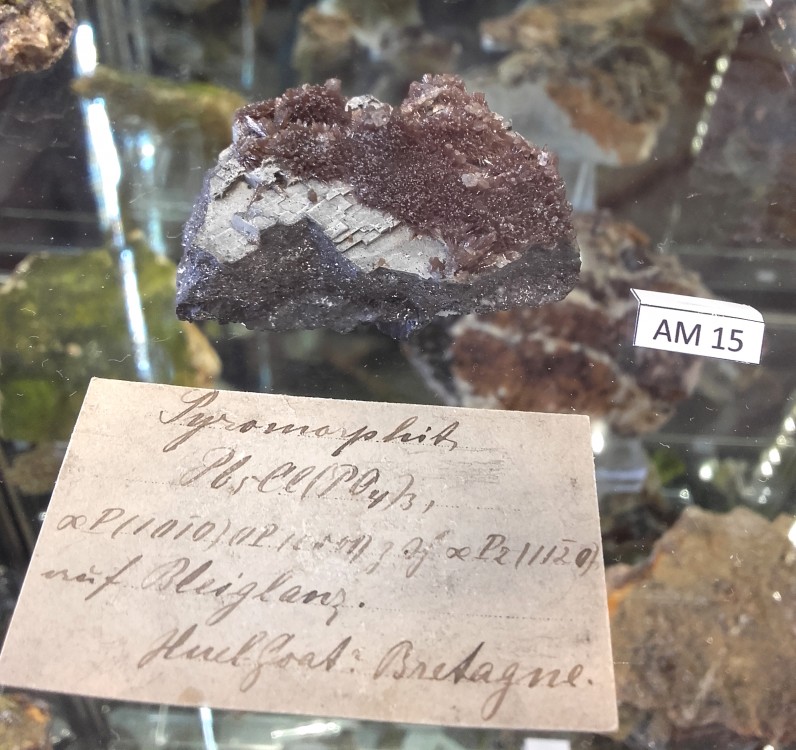 AM 15
Pyromorphit,
Pb5Cl(PO4)3,
∞P(101̄0) 0P (0001) z. Th. ∞P2(112̄0)
auf Bleiglanz.
Huelgoat: Bretagne.